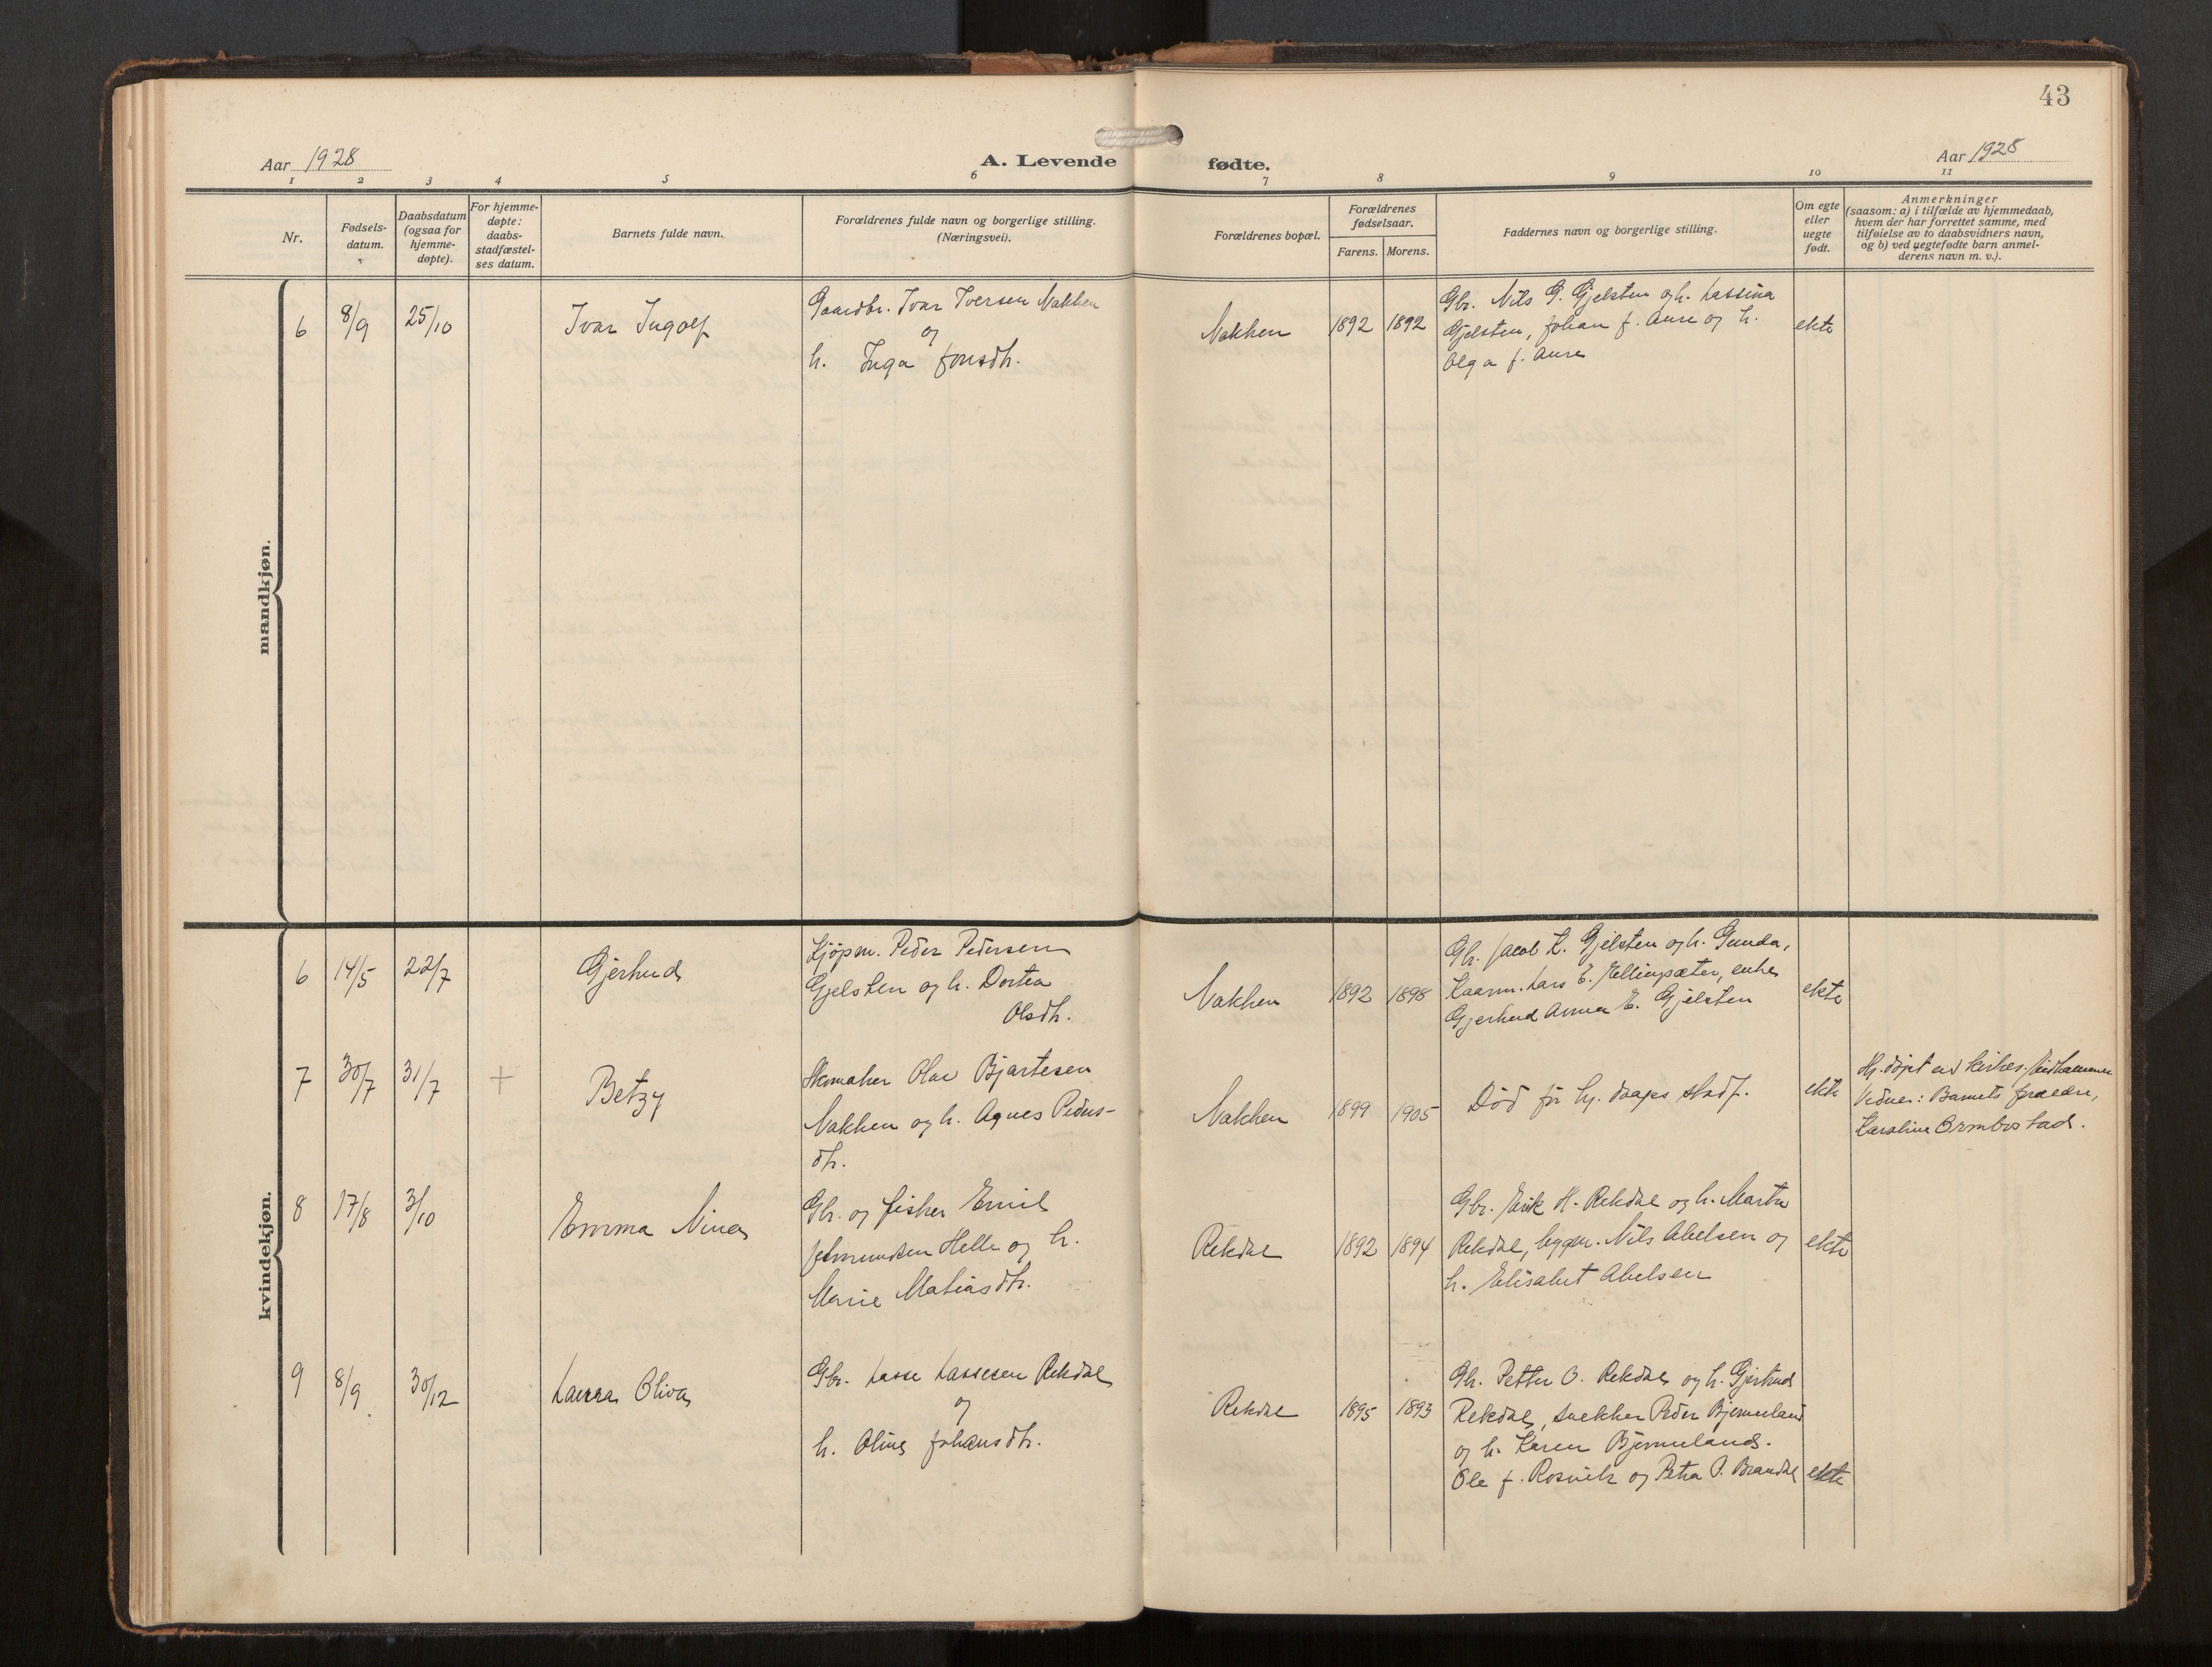 43
Aar 1928
A. Levende fødte.
Aar 1928
1 2 3 4 5 6 7 8 9 10 11
Nr.
Fødsels-
datum.
Daabsdatum
(ogsaa for
hjemme-
døpte).
For hjemme-
døpte:
daabs-
stadfæstel-
ses datum.
Barnets fulde navn.
Forældrenes fulde navn og borgerlige stilling.
(Næringsvei).
Forældrenes bopæl.
Forældrenes
fødselsaar.
Farens. Morens.
Faddernes navn og borgerlige stilling.
Om egte
eller
uegte
født.
Anmerkninger
(saasom: a) i tilfælde av hjemmedaab,
hvem der har forrettet samme, med
tilføielse av to daabsvidners navn,
og b) ved uegtefødte barn anmel-
derens navn m. v.).
mandkjøn.
6 8/9 25/10
Ivar Ingolf
Gaardbr. Ivar Iversen Nakken
og
h. Inga Jonsdtr.
Nakken 1892 1892
Gbr. Nils G. Gjelsten og h. Lassina
Gjelsten, Johan J. Aure og h.
Olga J. Aure
ekte
kvindekjøn.
6 14/5 22/7
Gjertrud
Kjøpm. Peder Pedersen
Gjelsten og h. Dortea
Olsdtr.
Nakken 1892 1898
Gbr. Jacob K. Gjelsten og h. Gunda,
Lars E. Ellingsæter, enke
Gjertrud Anna E. Gjelsten
ekte
7 30/7 31/7 +
Betzy
Olav Bjartesen
Nakken og h. Agnes Peders-
dtr.
Nakken 1899 1905
Død før hj. daaps stadf.
ekte
Hj. døpt ved kirkes.
Vidner: Barnets forældre,
Karoline Ormbostad.
8 17/8 3/10
Emma Nina
Gbr. og fisker Emil
Helle og h.
Marie Matiasdtr.
Rekdal 1892 1894
Gbr. Erik H. Rekdal og h. Marta
Rekdal, bygm. Nils Abelsen og
h. Elisabet Abelsen
ekte
9 8/9 30/12
Laura Oliva
Gbr. Lasse Lassesen Rekdal
og
h. Oline Johansdtr.
Rekdal 1895 1893
Gbr. Petter O. Rekdal og h. Gjertrud
Rekdal, snekker Peder Bjermeland
og h. Karen Bjermeland.
Ole J. Rosvik og Petra P. Brandal
ekte